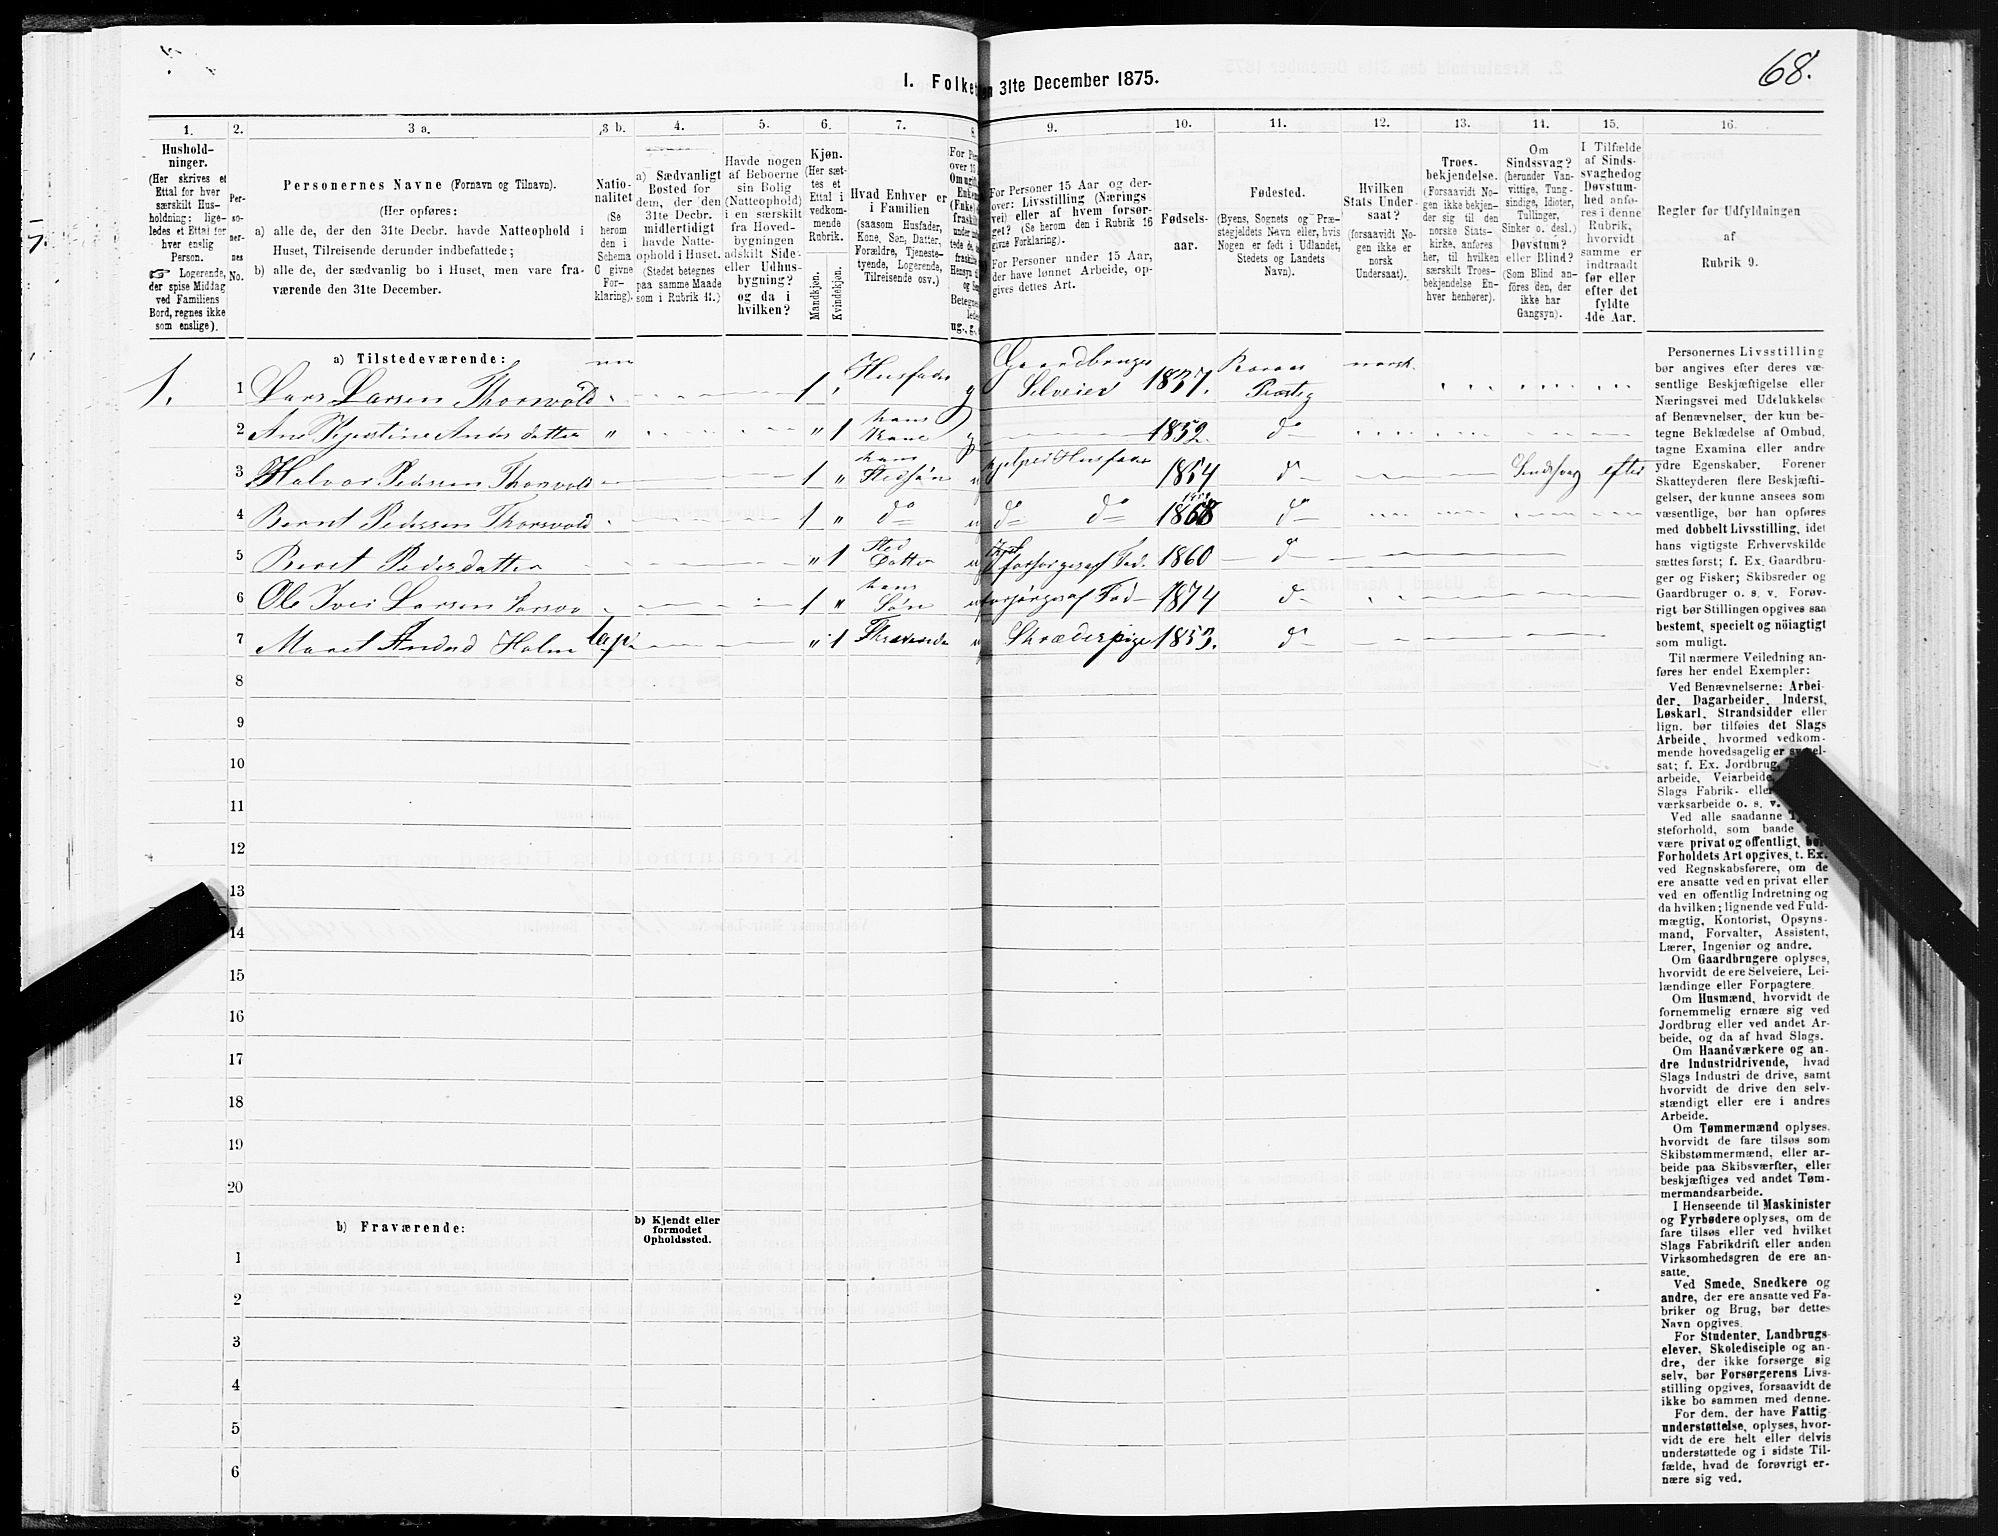 68.
I. Folket en 31te December 1875.
1. 2. 3 a. 3 b. 4. 5. 6. 7. 8. 9. 10. 11. 12. 13. 14. 15. 16.
Hushold-
ninger.
(Her skrives et
Ettal for hver
særskilt Hus-
holdning; lige-
ledes et Ettal for
hver enslig
Person.
☞ Logerende,
der spise Middag
ved Familiens
Bord, regnes ikke
som enslige).
Per-
so-
ner-
nes
No.
Personernes Navne (Fornavn og Tilnavn).
(Her opføres:
a) alle de, der den 31te Decbr. havde Natteophold i
Huset, Tilreisende derunder indbefattede;
b) alle de, der sædvanlig bo i Huset, men vare fra-
værende den 31te December.
Natio-
nalitet
(Se
herom
den i
Schema
C givne
For-
klaring).
a) Sædvanligt
Bosted for
dem, der den
31te Decbr.
midlertidigt
havde Natte-
ophold i Huset.
(Stedet betegnes
paa samme Maade
som i Rubrik 11.)
Havde nogen
af Beboerne
sin Bolig
(Natteophold)
i en særskilt
fra Hoved-
bygningen
adskilt Side-
eller Udhus-
bygning?
og da i
hvilken?
Kjøn.
(Her sæt-
tes et
Ettal i
vedkom-
mende
Rubrik.
Mandkjøn.
Kvindekjøn.
Hvad Enhver er
i Familien
(saasom Husfader,
Kone, Søn, Datter,
Forældre, Tjeneste-
tyende, Logerende,
Tilreisende osv.)
For Personer 15 Aar og der-
over: Livsstilling (Nærings
vei) eller af hvem forsør-
get? (Se herom den i Rubrik 16
givne Forklaring).
For Personer under 15 Aar,
der have lønnet Arbeide, op-
gives dettes Art.
Fødsels-
aar.
Fødested.
(Byens, Sognets og Præ-
stegjeldets Navn eller, hvis
Nogen er født i Udlandet,
Stedets og Landets
Navn).
Hvilken
Stats Under-
saat?
(forsaavidt No-
gen ikke er
norsk
Undersaat).
Troes-
bekjendelse.
(Forsaavidt No-
gen ikke bekjen-
der sig til den
norske Stats-
kirke, anføres
her, til hvilken
særskilt Troes-
bekjendelse En-
hver henhører).
Om
Sindssvag?
(herunder Van-
vittige, Tung-
sindige, Idioter,
Tullinger,
Sinker o. desl.)
Døvstum?
eller Blind?
(Som Blind an-
føres den, der
ikke har
Gangsyn).
I Tilfælde
af Sinds-
svaghed og
Døvstum-
hed anfø-
res i denne
Rubrik,
hvorvidt
samme er
indtraadt
før eller
efter det
fyldte
4de Aar.
Regler for Udfyldningen
af
Rubrik 9.
a) Tilstedeværende:
1. 1 Lars Larsen Thorsvold 1 Husfader g Gaardbruger Selveier 1837. Roraas Præsteg norsk.
2 Ane Kjerstine Anders datter " " 1 hans Kone g 1832. do
3 Halvor Pedersen Thorsvold 1 " hans Stedsøn u hjelper Husfader 1854 do Sindsvag efter
4 Bernt Pedersen Thorsvold 1 " do u do do do
5 Beret Pedersdatter " 1 Sted Datter u forsørges af Fad. 1860 do
6 Ole Iver Larsen 1 " hans Søn u forsørges af Fad 1874 do
7 Maret Andersd Holm lap. " 1 u Skræderpige 1853. do
8
9
10
11
12
13
14
15
16
17
18
19
20
b) Fraværende:
b) Kjendt eller
formodet
Opholdssted.
1
2
3
4
5
6
Personernes Livsstilling
bør angives efter deres væ-
sentlige Beskjæftigelse eller
Næringsvei med Udelukkelse
af Benævnelser, der kun be-
tegne Beklædelse af Ombud,
tagne Examina eller andre
ydre Egenskaber. Forener
Skatteyderen flere Beskjæfti-
gelser, der kunne ansees som
væsentlige, bør han opføres
med dobbelt Livsstilling, idet
hans vigtigste Erhvervskilde
sættes først; f. Ex. Gaardbru-
ger og Fisker; Skibsreder og
Gaardbruger o. s. v. Forøv-
rigt bør Stillingen opgives saa
bestemt, specielt og nöiagtigt
som muligt.
Til nærmere Veiledning an-
føres her endel Exempler:
Ved Benævnelserne: Arbei-
der, Dagarbeider, Inderst,
Løskarl, Strandsidder eller
lign. bør tilføies det Slags
Arbeide, hvormed vedkom-
mende hovedsagelig er syssel-
sat; f. Ex. Jordbrug,
arbeide, Veiarbeide,
Slags Fabrik- eller
værksarbeide o. s. v.
Ved alle saadanne
steforhold, som baade
være privat og offentligt, bør
Forholdets Art opgives, t. Ex.
ved Regnskabsførere, om de
ere ansatte ved en privat eller
ved en offentlig Indretning og
da hvilken; lignende ved Fuld-
mægtig, Kontorist, Opsyns-
mand, Forvalter, Assistent,
Lærer, Ingeniør og andre.
Om Gaardbrugere oplyses,
hvorvidt de ere Selveiere, Lei-
lændinge eller Forpagtere.
Om Husmænd, hvorvidt de
fornemmelig ernære sig ved
Jordbrug eller ved andet Ar-
beide, og da af hvad Slags.
Om Haandværkere og an-
dre Industridrivende, hvad
Slags Industri de drive, samt
hvorvidt de drive den selv-
stændigt eller ere i andres
Arbeide.
Om Tømmermænd oplyses,
hvorvidt de fare tilsøs som
Skibstømmermænd, eller ar-
beide paa Skibsværfter, eller
beskjæftiges ved andet Tøm-
mermandsarbeide.
I Henseende til Maskinister
og Fyrbødere oplyses, om de
fare tilsøs eller ved hvilket
Slags Fabrikdrift eller anden
Virksomhedsgren de ere an-
satte.
Ved Smede, Snedkere og
andre, der ere ansatte ved Fa-
briker og Brug, bør dettes
Navn opgives.
For Studenter, Landbrugs-
elever, Skoledisciple og an-
dre, der ikke forsørge sig
selv, bør Forsørgerens Livs-
stilling opgives, forsaavidt de
ikke bo sammen med denne.
For dem, der have Fattig-
understøttelse, oplyses, hvor-
vidt de ere helt eller delvis
understøttede og i sidste Til-
fælde, hvad de forøvrigt er-
nære sig ved.